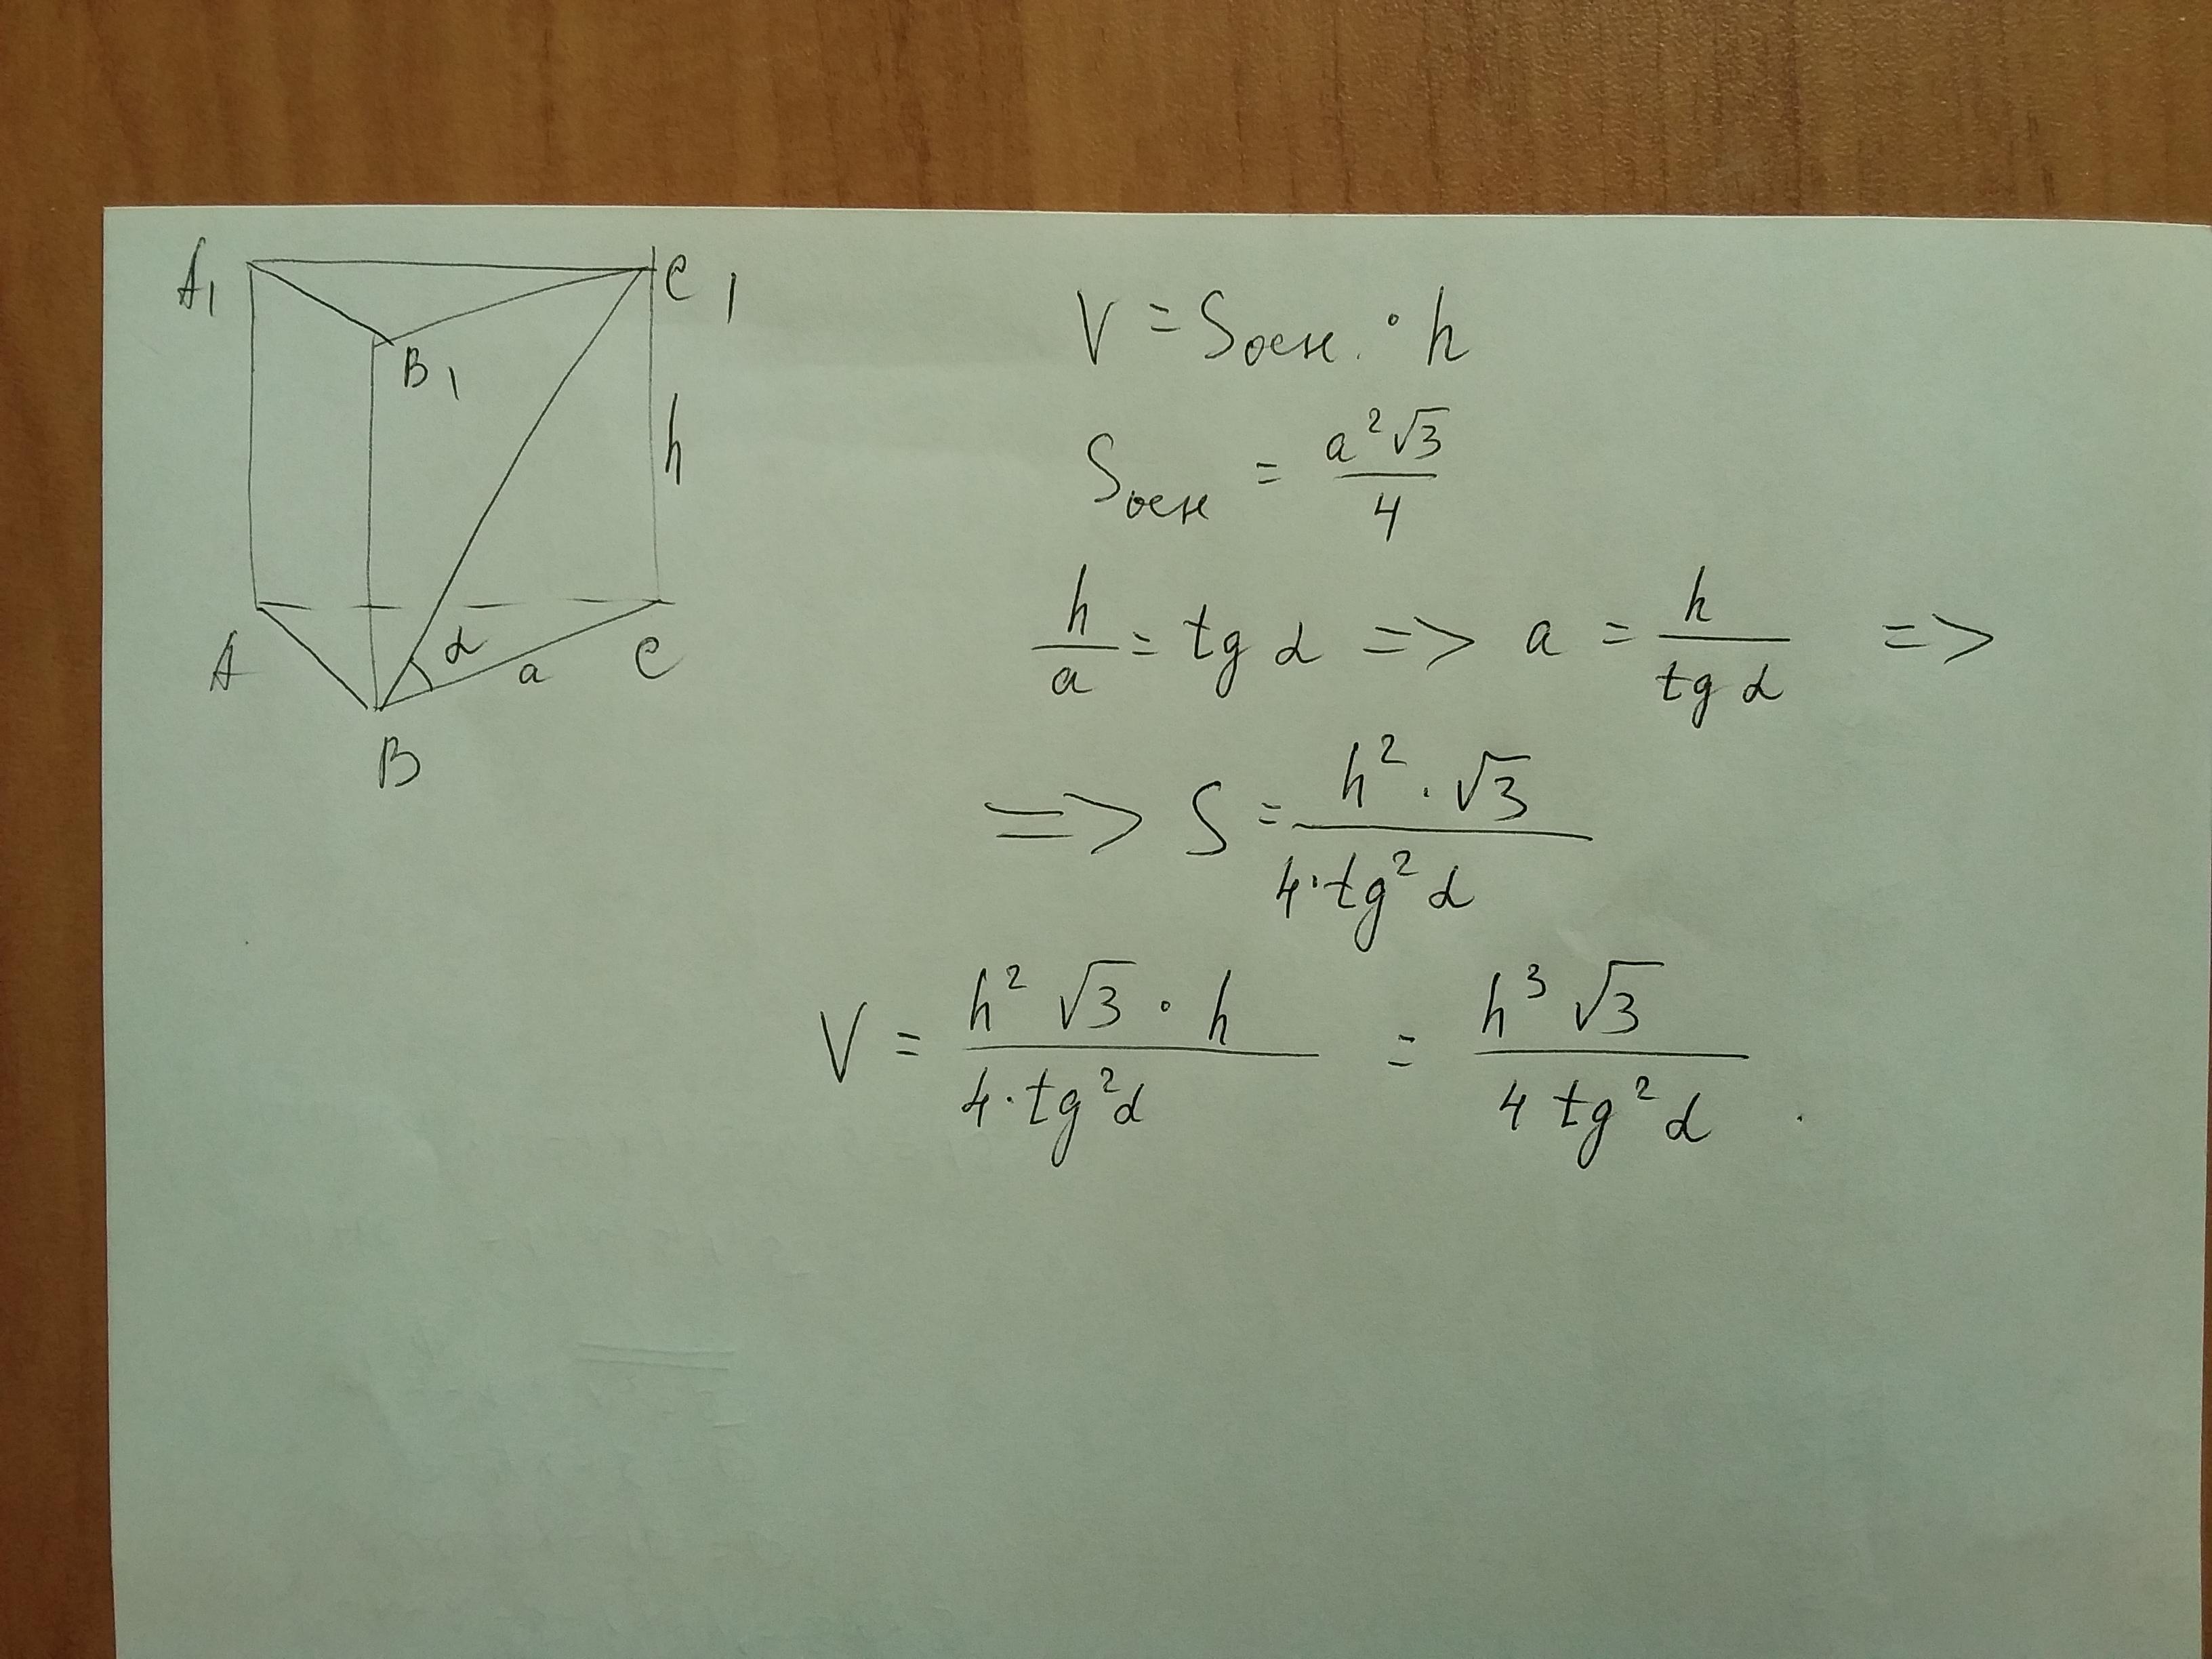 A₁ C₁
B₁
h
A α a C
B
V = Sосн. · h
Sосн = a²√3 / 4
h/a = tg α => a = h / tg α =>
=> S = h² · √3 / 4 · tg² α
V = h² √3 · h / 4 · tg² α = h³ √3 / 4 tg² α .